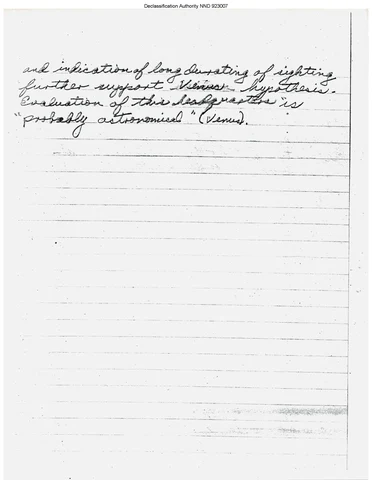 Declassification Authority NND 923007
and indication of long durating of sighting
further support Venus hypothesis.
Evaluation of this headquarters is
"probably astronomical" (Venus).